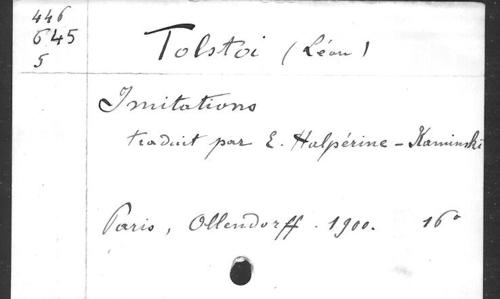 446
645
5
Tolstoi (Léon)
Imitations
traduit par E. Halpérine-Kaminski
Paris, Ollendorff. 1900. 16°